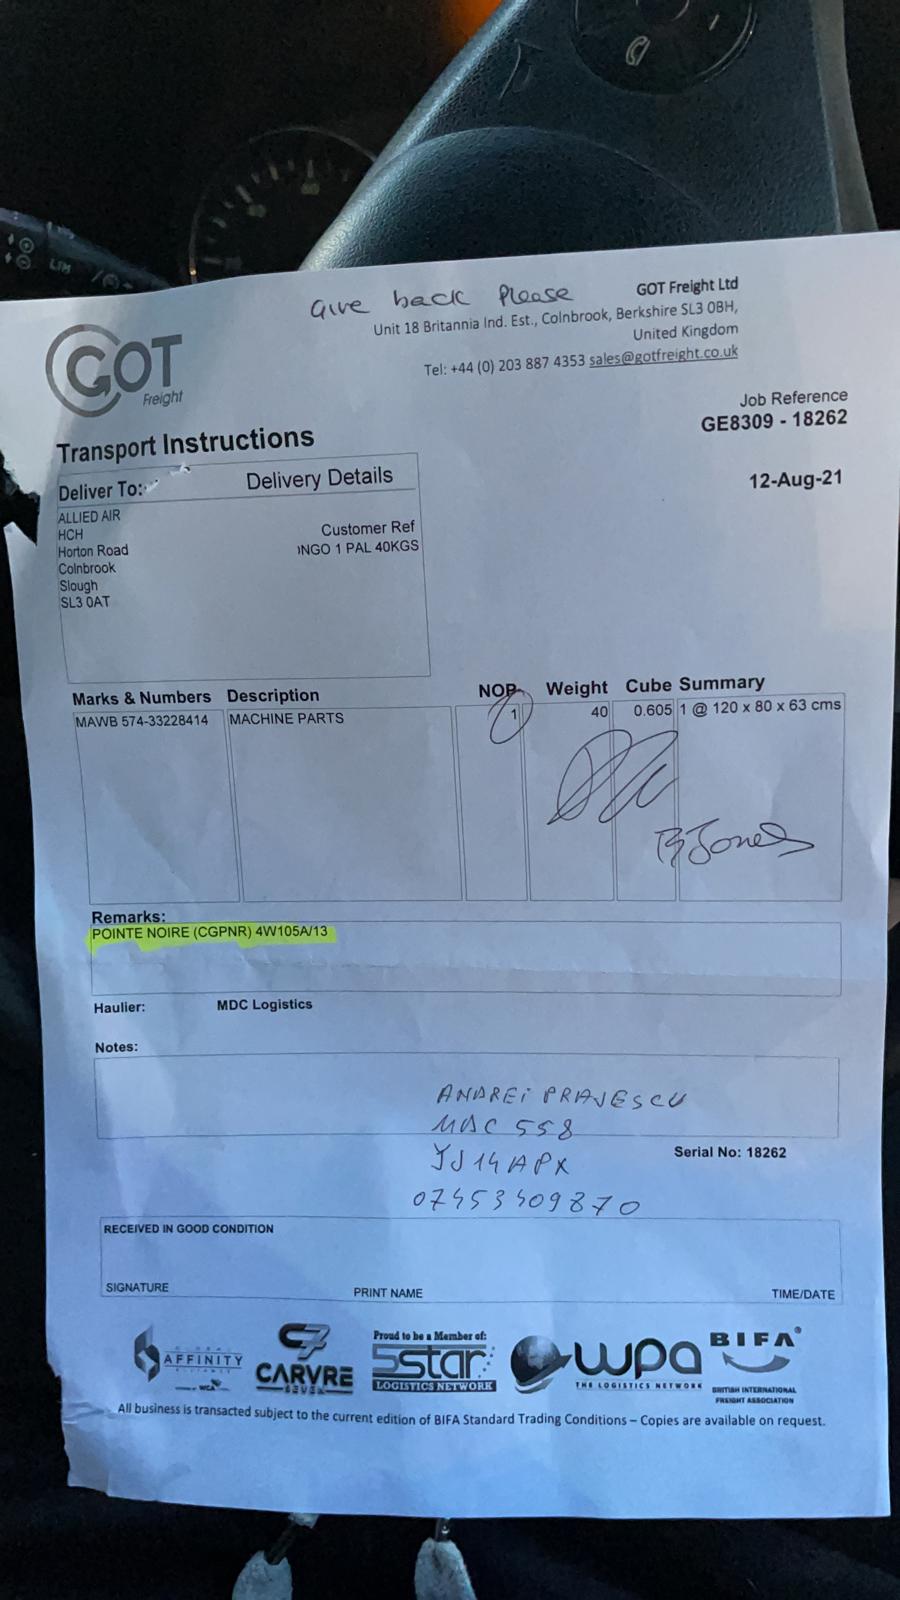 Give back Please
GOT Freight Ltd
Unit 18 Britannia Ind. Est., Colnbrook, Berkshire SL3 0BH,
United Kingdom
Tel: +44 (0) 203 887 4353 sales@gotfreight.co.uk
GOT
Freight
Job Reference
GE8309 - 18262
Transport Instructions
12-Aug-21
Deliver To: Delivery Details
ALLIED AIR
HCH
Horton Road
Colnbrook
Slough
SL3 0AT
Customer Ref
INGO 1 PAL 40KGS
Marks & Numbers Description NOP Weight Cube Summary
MAWB 574-33228414 MACHINE PARTS 1 40 0.605 1 @ 120 x 80 x 63 cms
B Jones
Remarks:
POINTE NOIRE (CGPNR) 4W105A/13
Haulier: MDC Logistics
Notes:
ANDREI PRAJESCU
MDC 558
YJ14APX
07453409870
Serial No: 18262
RECEIVED IN GOOD CONDITION
SIGNATURE PRINT NAME TIME/DATE
GLOBAL AFFINITY ALLIANCE
WCA
C7 CARVRE SEVEN
Proud to be a Member of:
5star
LOGISTICS NETWORK
wpa
THE LOGISTICS NETWORK
BIFA
BRITISH INTERNATIONAL
FREIGHT ASSOCIATION
All business is transacted subject to the current edition of BIFA Standard Trading Conditions – Copies are available on request.